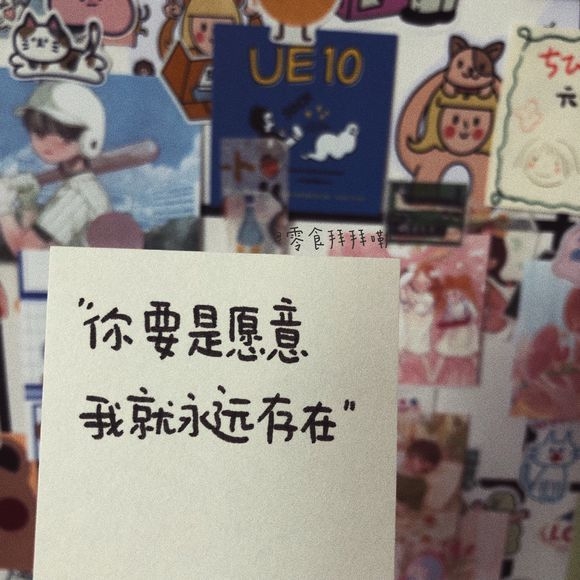 UE10
ちび
六
@零食拜拜噗
"你要是愿意
我就永远存在"